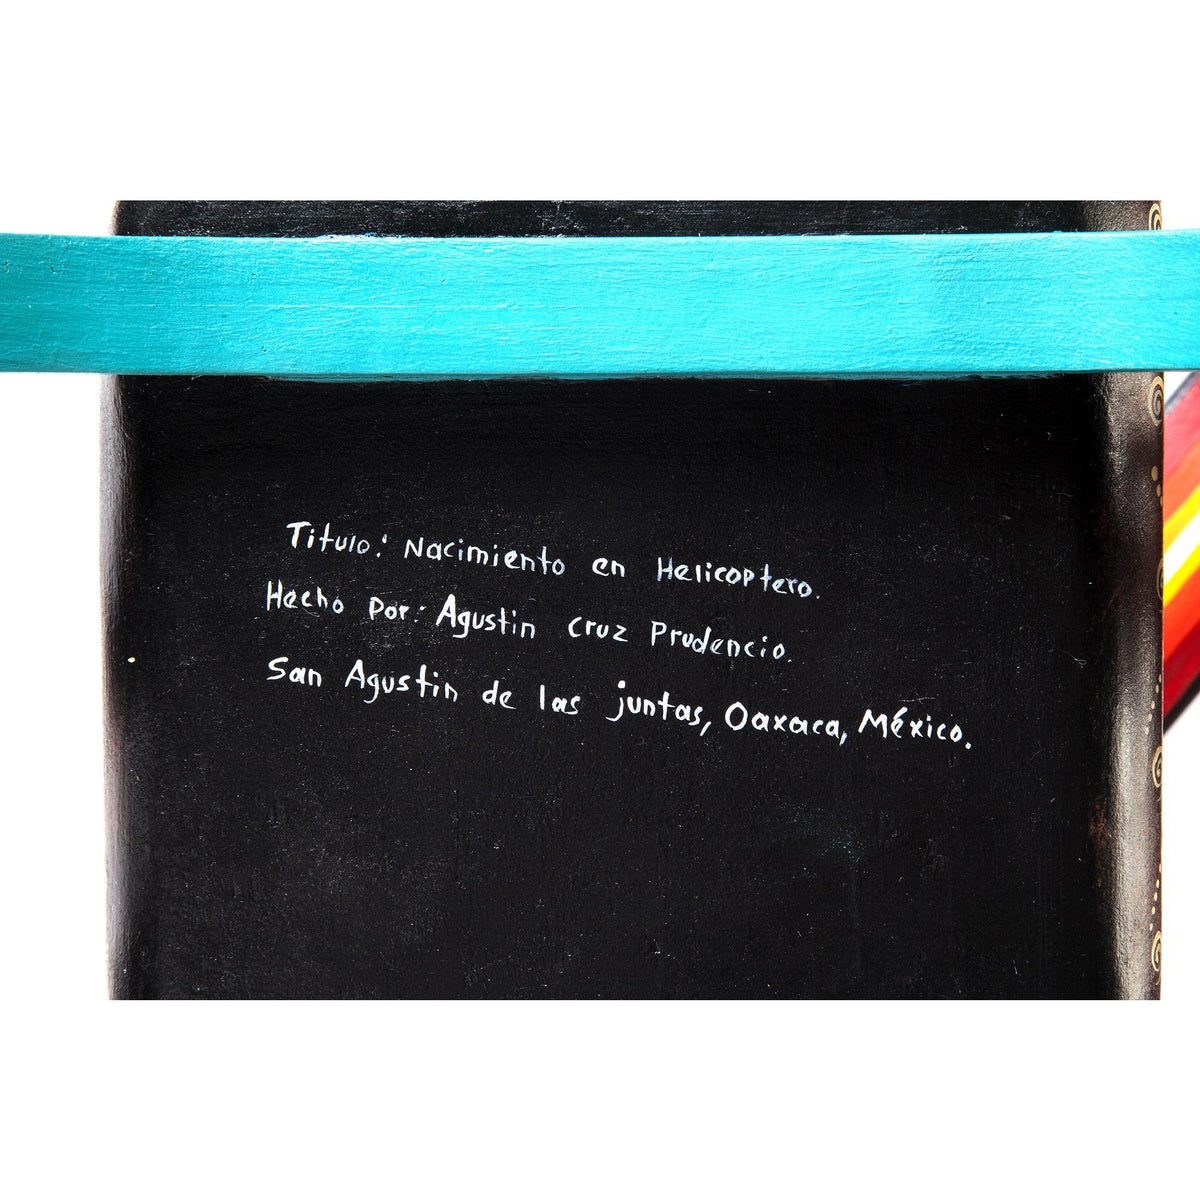 Titulo: Nacimiento en Helicoptero.
Hecho Por: Agustin Cruz Prudencio.
San Agustin de las juntas, Oaxaca, México.